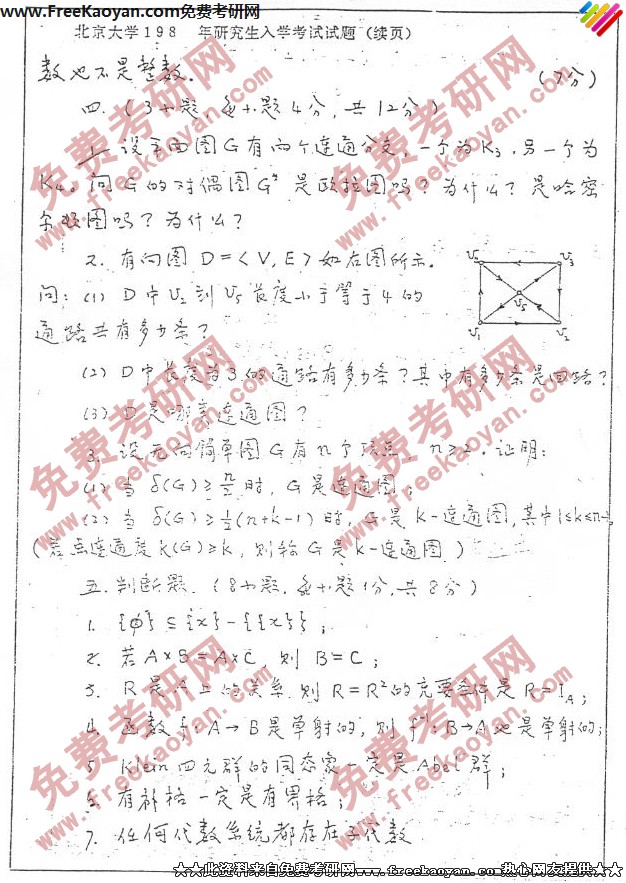 www.FreeKaoyan.com免费考研网
北京大学198 年研究生入学考试试题(续页)
数也不是整数. (7分)
四.(3小题,每小题4分,共12分)
1. 设平面图G有两个连通分支,一个为K3,另一个为
K4。问G的对偶图G*是欧拉图吗?为什么?是哈密
尔顿图吗?为什么?
2. 有向图D=<V,E>如右图所示.
问:(1) D中V2到V5长度小于等于4的
通路共有多少条?
V3
V5
V1
V2
(2) D中长度为3的通路有多少条?其中有多少条是回路?
(3) D是哪类连通图?
3. 设无向简单图G有n个顶点,n≥2.证明:
(1) 当 δ(G)≥n/2时,G是连通图;
(2) 当 δ(G)≥½(n+k-1)时,G是k-连通图,其中1≤k≤n-1.
(若点连通度κ(G)≥k,则称G是k-连通图.)
五.判断题.(8小题.每小题1分,共8分)
1. {φ}⊆{x}-{{x}};
2. 若A×B=A×C,则B=C;
3. R是A上的关系,则R=R²的充要条件是R=I_A;
4. 函数f:A→B是单射的,则f⁻¹:B→A也是单射的;
5. Klein四元群的同态象一定是Abel群;
6. 有补格一定是有界格;
7. 任何代数系统都存在子代数
★★此资料来自免费考研网www.freekaoyan.com热心网友提供★★
免费考研网
www.freekaoyan.com
免费考研网
www.freekaoyan.com
免费考研网
www.freekaoyan.com
免费考研网
www.freekaoyan.com
免费考研网
www.freekaoyan.com
免费考研网
www.freekaoyan.com